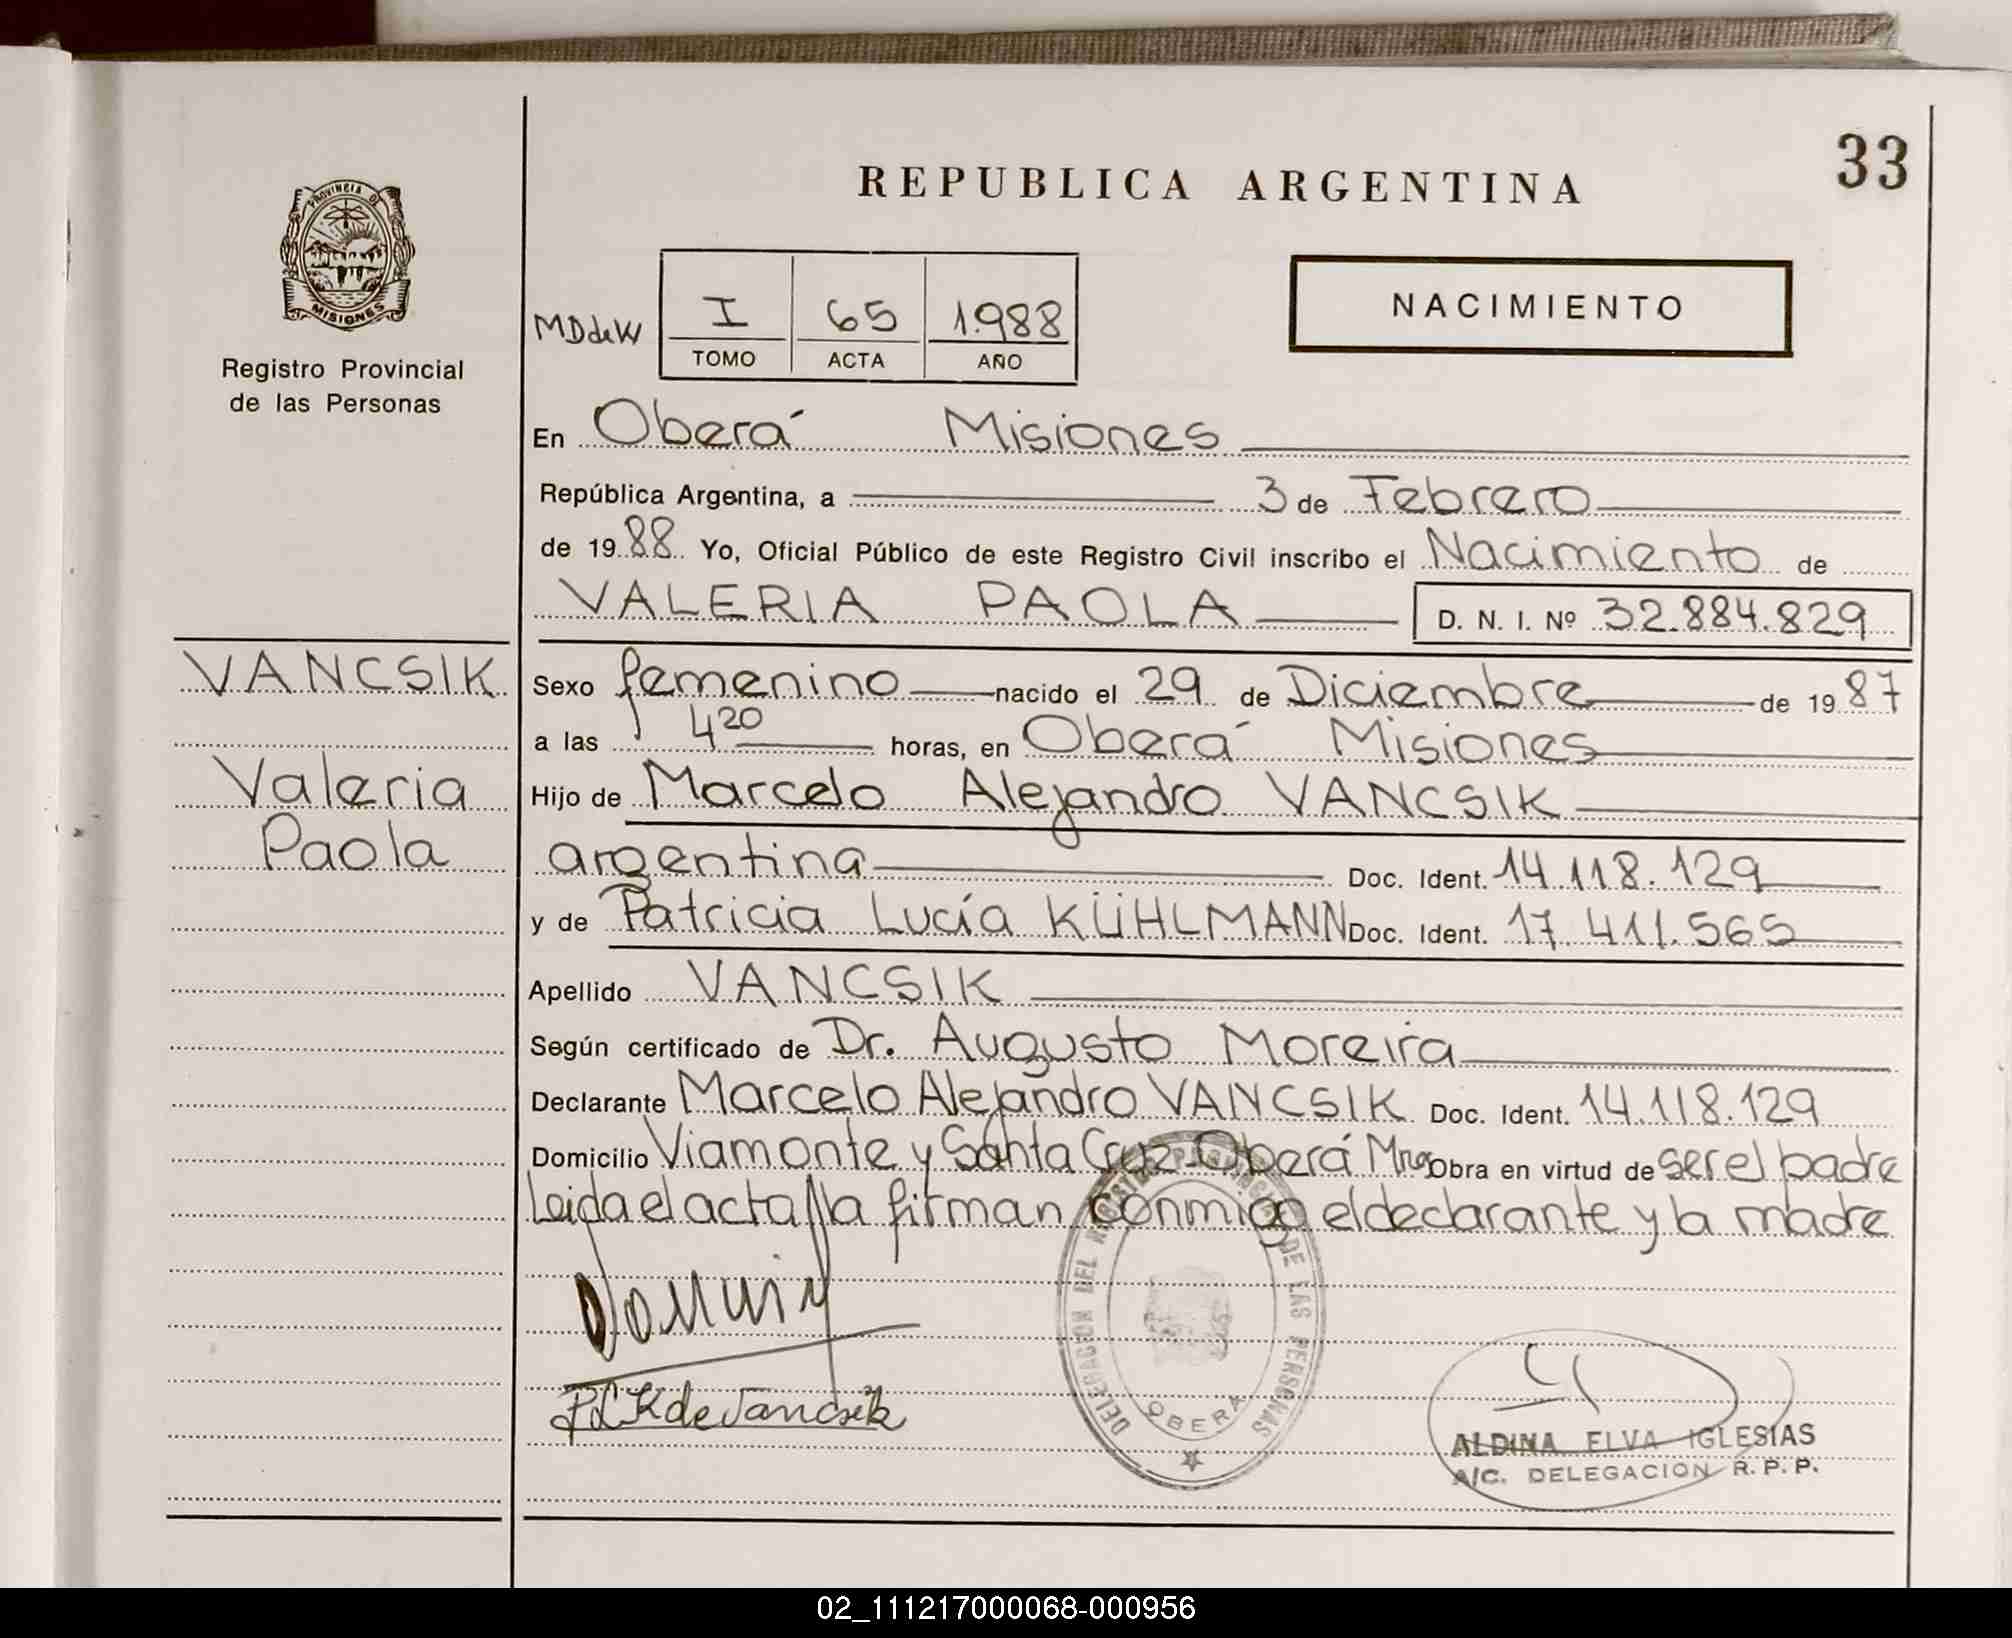 33
REPUBLICA ARGENTINA
PROVINCIA DE
MISIONES
Registro Provincial
de las Personas
MDdeW
I 65 1.988
TOMO ACTA AÑO
NACIMIENTO
En Oberá Misiones
República Argentina, a 3 de Febrero
de 19 88 Yo, Oficial Público de este Registro Civil inscribo el Nacimiento de
VALERIA PAOLA D. N. I. Nº 32.884.829
VANCSIK
Valeria
Paola
Sexo femenino nacido el 29 de Diciembre de 19 87
a las 4 20 horas, en Oberá Misiones
Hijo de Marcelo Alejandro VANCSIK
argentina Doc. Ident. 14.118.129
y de Patricia Lucía KÜHLMANN Doc. Ident. 17.411.565
Apellido VANCSIK
Según certificado de Dr. Augusto Moreira
Declarante Marcelo Alejandro VANCSIK Doc. Ident. 14.118.129
Domicilio Viamonte y Santa Cruz-Oberá Mnes Obra en virtud de ser el padre
Leida el acta la firman conmigo el declarante y la madre
P L K de Vancsik
DELEGACION DEL REGISTRO PROVINCIAL DE LAS PERSONAS
OBERA
ALDINA ELVA IGLESIAS
A/C. DELEGACION R. P. P.
02_111217000068-000956